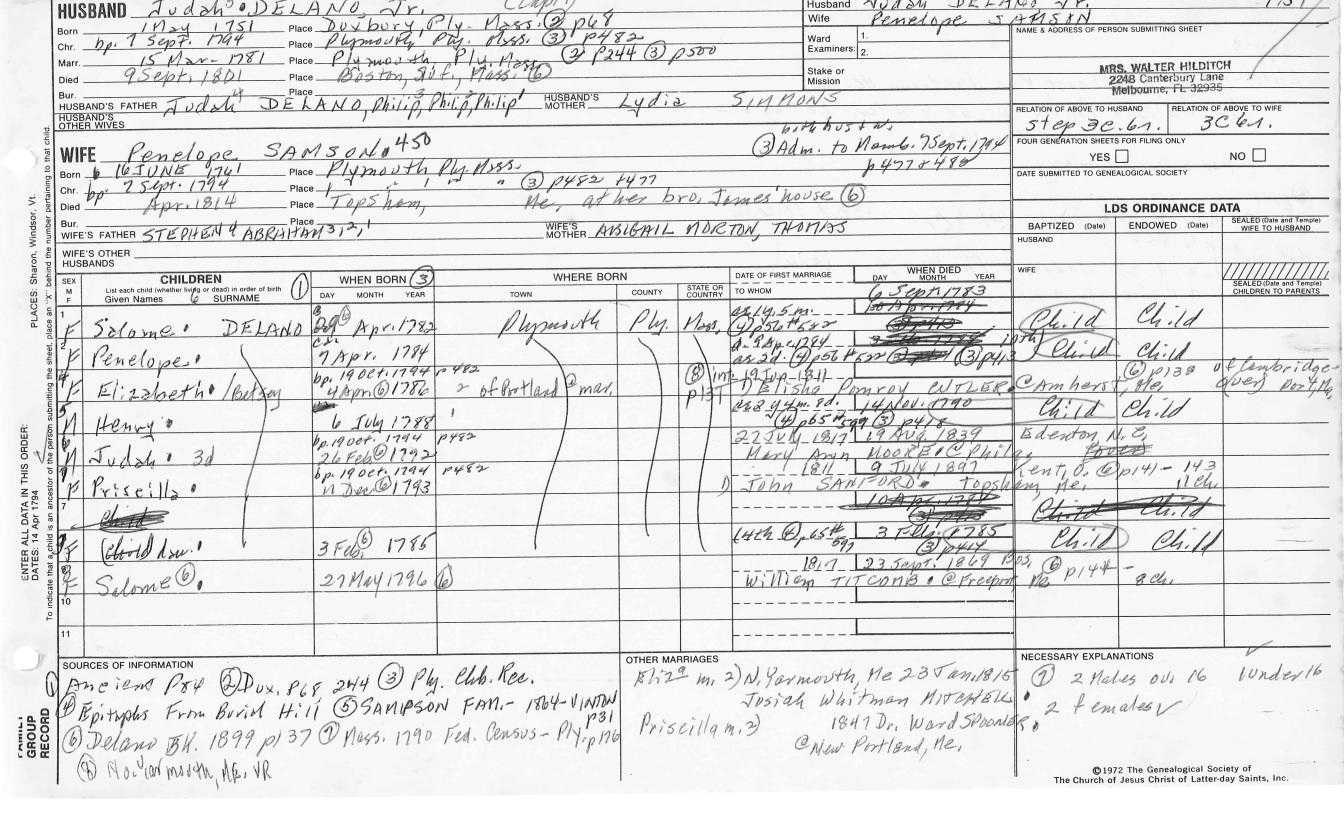 HUSBAND Judah DELANO, Jr. (Capt.)
Husband Judah DELANO Jr.
Wife Penelope SAMSON
Born 1 May 1751 Place Duxbury, Ply. Mass. (2) p68
Chr. bp. 7 Sept. 1794 Place Plymouth, Ply. Mass. (3) p482
Marr. 15 Mar- 1781 Place Plymouth, Ply, Mass (2) p244 (3) p500
Died 9 Sept. 1801 Place Boston, Suf., Mass. (6)
Bur. Place
HUSBAND'S FATHER Judah4 DELANO, Philip,3 Philip,2 Philip1 HUSBAND'S MOTHER Lydia SIMMONS
HUSBAND'S OTHER WIVES
Ward Examiners: 1. 2.
Stake or Mission
NAME & ADDRESS OF PERSON SUBMITTING SHEET
MRS. WALTER HILDITCH
2248 Canterbury Lane
Melbourne, FL 32935
RELATION OF ABOVE TO HUSBAND RELATION OF ABOVE TO WIFE
step 3C.6r. 3C 6r.
FOUR GENERATION SHEETS FOR FILING ONLY
YES NO
DATE SUBMITTED TO GENEALOGICAL SOCIETY
WIFE Penelope SAMSON. 450
(3) Adm. to Memb. 7 Sept. 1794
p477 & 482
Born 16 JUNE 1761 Place Plymouth Ply. Mass.
Chr. bp 7 Sept. 1794 Place " " " (3) p482 +477
Died Apr. 1814 Place Topsham, Me, at her bro. James' house (6)
Bur. Place
WIFE'S FATHER STEPHEN4 ABRAHAM3,2,1 WIFE'S MOTHER ABIGAIL MORTON, THOMAS
WIFE'S OTHER HUSBANDS
LDS ORDINANCE DATA
BAPTIZED (Date) ENDOWED (Date) SEALED (Date and Temple) WIFE TO HUSBAND
HUSBAND
WIFE
SEALED (Date and Temple) CHILDREN TO PARENTS
SEX M F
CHILDREN (1)
List each child (whether living or dead) in order of birth
Given Names 6 SURNAME
WHEN BORN (3)
DAY MONTH YEAR
WHERE BORN
TOWN COUNTY STATE OR COUNTRY
DATE OF FIRST MARRIAGE
TO WHOM
WHEN DIED
DAY MONTH YEAR
6 Sept. 1783
1 F Salome. DELANO Apr. 1782 Plymouth Ply. Mass. (4) p56 # 582 Child Child
2 F Penelope. 7 Apr. 1784 (4) p56 # (3) p413 Child Child
4 F Elizabeth. /Betsey bp. 19 Oct. 1794 p482 4 Apr (6) 1786 of Portland @ mar. (8) int. 19 Jun. 1811 p137 Elisha Pomroy CUTLER. @ Amherst, Me. (6) p138 of Cambridge-
5 M Henry. 6 July 1788 14 Nov. 1790 (4) p65 # 599 (3) p418 Child Child
6 M Judah. 3d bp. 19 Oct. 1794 p482 26 Feb (6) 1792 22 July 1817 19 Aug. 1839 Mary Ann MOORE. @ Phila. Edenton, N.C.
F Priscilla. bp. 19 Oct. 1794 p482 11 Dec. (6) 1793 1811 9 July 1897 John SANFORD. Topsham, Me. Kent, O. (6) p141- 143 11 ch.
7 Child Child Child
F (Child) dau. 3 Feb. (6) 1785 14th (4) p65 # 597 3 Feb. 1785 (3) p414 Child Child
F Salome (6). 27 May 1796 (6) 1817 23 Sept. 1869 Bos. William TITCOMB. @ Freeport, Me (6) p144- 8 ch.
10
11
SOURCES OF INFORMATION
(1) Ancient P84 (2) Dux. p68, 244 (3) Ply. Chh. Rec.
(4) Epitaphs From Burial Hill (5) SAMPSON FAM.- 1864-VINTON p31
(6) Delano BK. 1899 p137 (7) Mass. 1790 Fed. Census- Ply. p176
(8) No. Yarmouth, ME. VR
OTHER MARRIAGES
Eliz. m. 2) N. Yarmouth, Me 23 Jan. 1815
Josiah Whitman MITCHELL
Priscilla m. 2) 1847 Dr. Ward SPOONER.
@ New Portland, Me.
NECESSARY EXPLANATIONS
(7) 2 Males ov. 16 1 under 16
2 females
©1972 The Genealogical Society of
The Church of Jesus Christ of Latter-day Saints, Inc.
PLACES: Sharon, Windsor, Vt.
ENTER ALL DATA IN THIS ORDER:
DATES: 14 Apr 1794
To indicate that a child is an ancestor of the person submitting the sheet, place an "X" behind the number pertaining to that child.
FAMILY GROUP RECORD